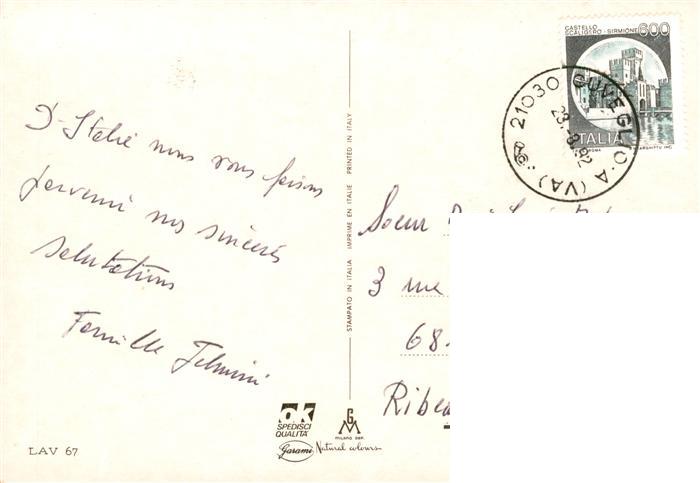 CASTELLO
SCALIGERO - SIRMIONE
600
ITALIA
21030 CUVEGLIO · A (VA)
23.-8.92
D'Italie nous vous faisons
parvenir nos sincères
salutations
Famille
STAMPATO IN ITALIA IMPRIME EN ITALIE PRINTED IN ITALY
Soeur
3 rue
68
Ribea
ok
SPEDISCI
QUALITÀ
GM
milano
Garami Natural colours
LAV 67